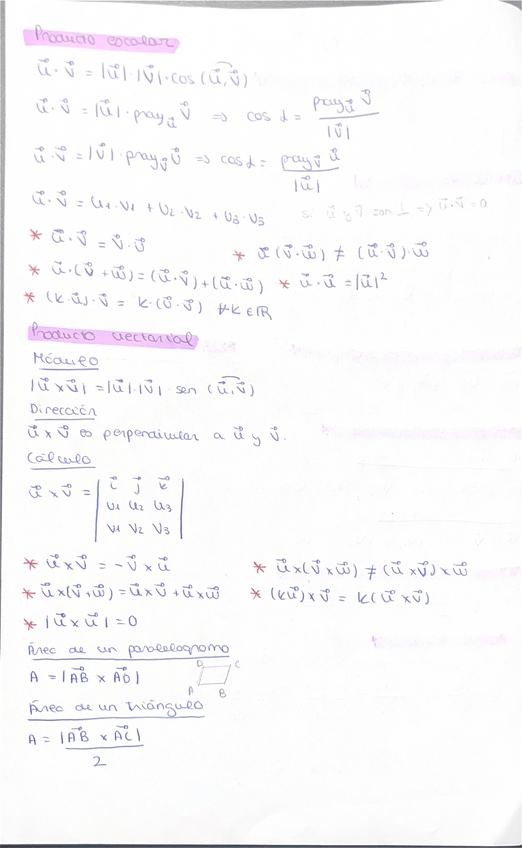 Producto escalar
u⃗ · v⃗ = |u⃗| · |v⃗| · cos (u⃗, v⃗)
u⃗ · v⃗ = |u⃗| · proy_u⃗ v⃗ ⇒ cos α = proy_u⃗ v⃗ / |v⃗|
u⃗ · v⃗ = |v⃗| · proy_v⃗ u⃗ ⇒ cos α = proy_v⃗ u⃗ / |u⃗|
u⃗ · v⃗ = u₁·v₁ + u₂·v₂ + u₃·v₃ si u⃗ y v⃗ son ⊥ ⇒ u⃗·v⃗ = 0
* u⃗ · v⃗ = v⃗ · u⃗ * u⃗ (v⃗ · w⃗) ≠ (u⃗ · v⃗) · w⃗
* u⃗ · (v⃗ + w⃗) = (u⃗ · v⃗) + (u⃗ · w⃗) * u⃗ · u⃗ = |u⃗|²
* (k · u⃗) · v⃗ = k · (u⃗ · v⃗) ∀k ∈ ℝ
Producto vectorial
Módulo
|u⃗ x v⃗| = |u⃗| · |v⃗| · sen (u⃗, v⃗)
Dirección
u⃗ x v⃗ es perpendicular a u⃗ y v⃗.
Cálculo
i⃗ j⃗ k⃗
u⃗ x v⃗ = | u₁ u₂ u₃ |
v₁ v₂ v₃
* u⃗ x v⃗ = - v⃗ x u⃗ * u⃗ x (v⃗ x w⃗) ≠ (u⃗ x v⃗) x w⃗
* u⃗ x (v⃗ + w⃗) = u⃗ x v⃗ + u⃗ x w⃗ * (k u⃗) x v⃗ = k (u⃗ x v⃗)
* |u⃗ x u⃗| = 0
Área de un paralelogramo
D C
A = |AB⃗ x AD⃗|
A B
Área de un triángulo
A = |AB⃗ x AC⃗|
2